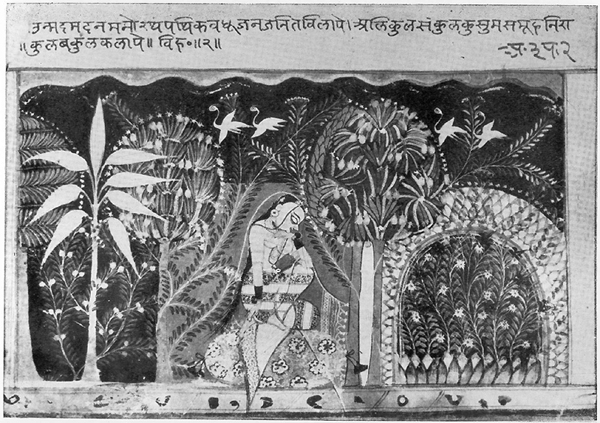 उन्मदमदनमनोरथपथिकवधूजनजनितविलापे। अलिकुलसंकुलकुसुमसमूहनिरा
॥कुलबकुलकलापे॥ विह०॥२॥